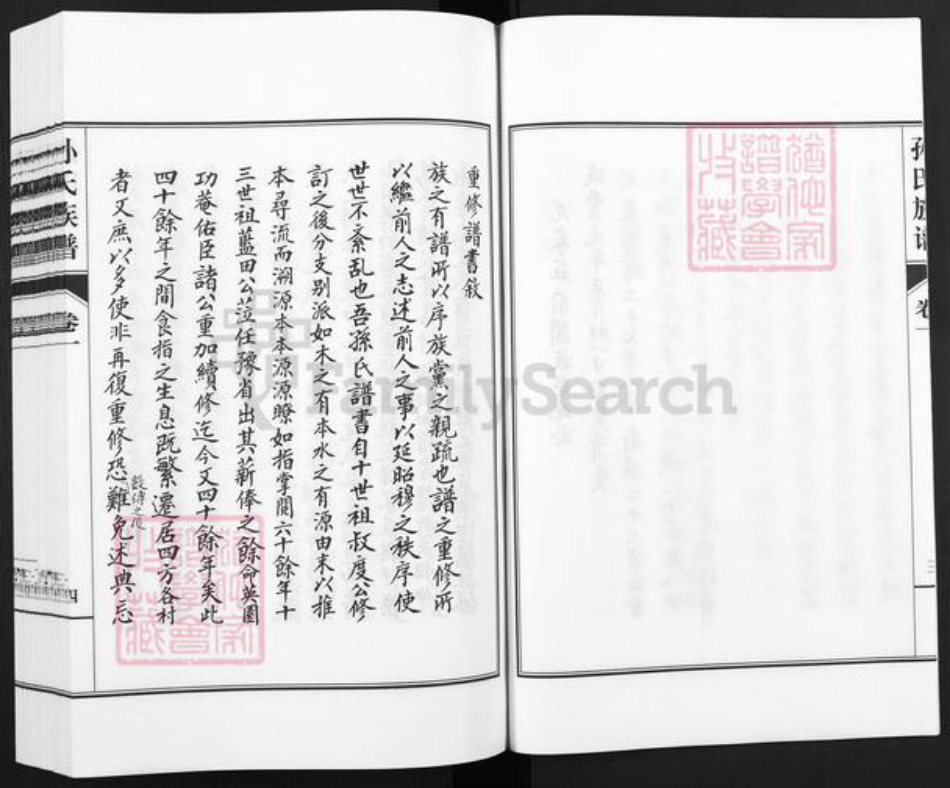 孙氏族谱
卷一
重修譜書敘
族之有譜所以序族黨之親疏也譜之重修所
以繼前人之志述前人之事以延昭穆之秩序使
世世不紊乱也吾孫氏譜書自十世祖叔度公修
訂之後分支别派如木之有本水之有源由末以推
本尋流而溯源本本源源瞭如指掌閱六十餘年十
三世祖藍田公蒞任豫省出其薪俸之餘命英圃
功菴佑臣諸公重加續修迄今又四十餘年矣此
四十餘年之間食指之生息既繁遷居四方各村
者又庶以多使非再復重修恐數傳之後難免述典忘
孙氏族谱
卷一
四
FamilySearch
猶他家
譜學會
收藏
猶他家
譜學會
收藏